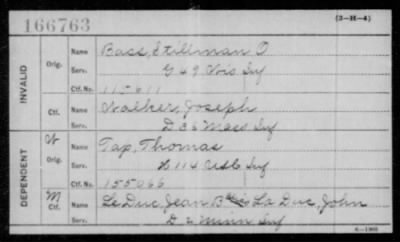 166763
(3-H-4)
INVALID
Orig.
Name Bass, Stillman O
Serv. G 49 Wis Inf
Ctf. No. 115611
Ctf.
Name Walker, Joseph
Serv. D 36 Mass Inf
DEPENDENT
W
Orig.
Name Tap, Thomas
Serv. H 114 USC Inf
Ctf. No. 155066
M
Ctf.
Name Le Duc, Jean La Duc, John
Serv. D 2 Minn Inf